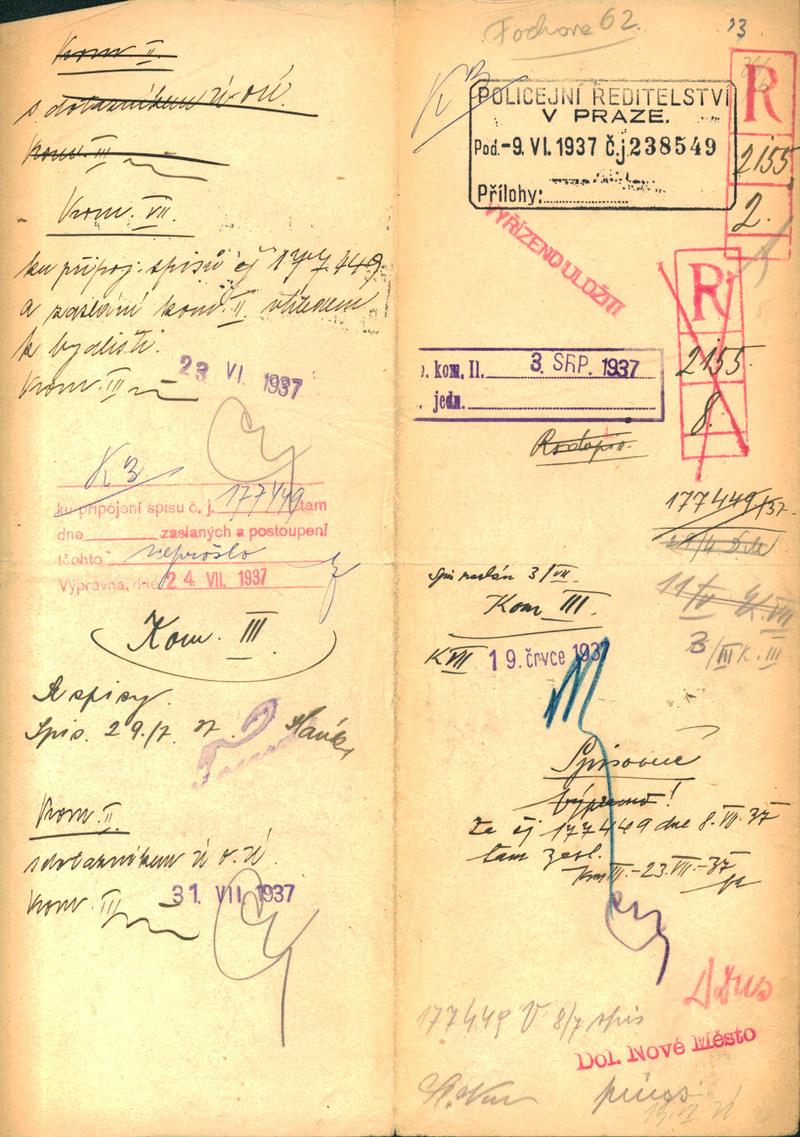 Kom. II.
s dotazníkem
Kom. III
Kom. VII.
ku připoj. spisů čj 177.449
a zaslání kom. II. vzhledem
k bydlišti.
Kom. III
23 VI. 1937
K 3
ku připojení spisu č. j. 177449 tam
dne zaslaných a postoupení
těchto neprošlo
Výpravna, dne 24. VII. 1937
Kom. III.
spisy.
Spis. 29./7. 37.
Kom. II.
s dotazníkem
Kom. III
31. VII 1937
Fochova 62.
23
K 3
POLICEJNÍ ŘEDITELSTVÍ
V PRAZE.
Pod. -9. VI. 1937 č.j. 238549
Přílohy:
R
2155
2.
VYŘÍZENO ULOŽITI
R
2155
8.
kom. II. 3. SRP. 1937
jedn.
177449/37.
Spis zaslán 3/VII.
Kom III.
11/IV K. VII
3/III K. III
K VII 19. črvce 1937
Spisovně
Výpravně!
Za čj 177449 dne 8. VII. 37
tam zasl.
Kom III. - 23. VII. - 37
177449 V 8/7 spis
Dol. Nové Město